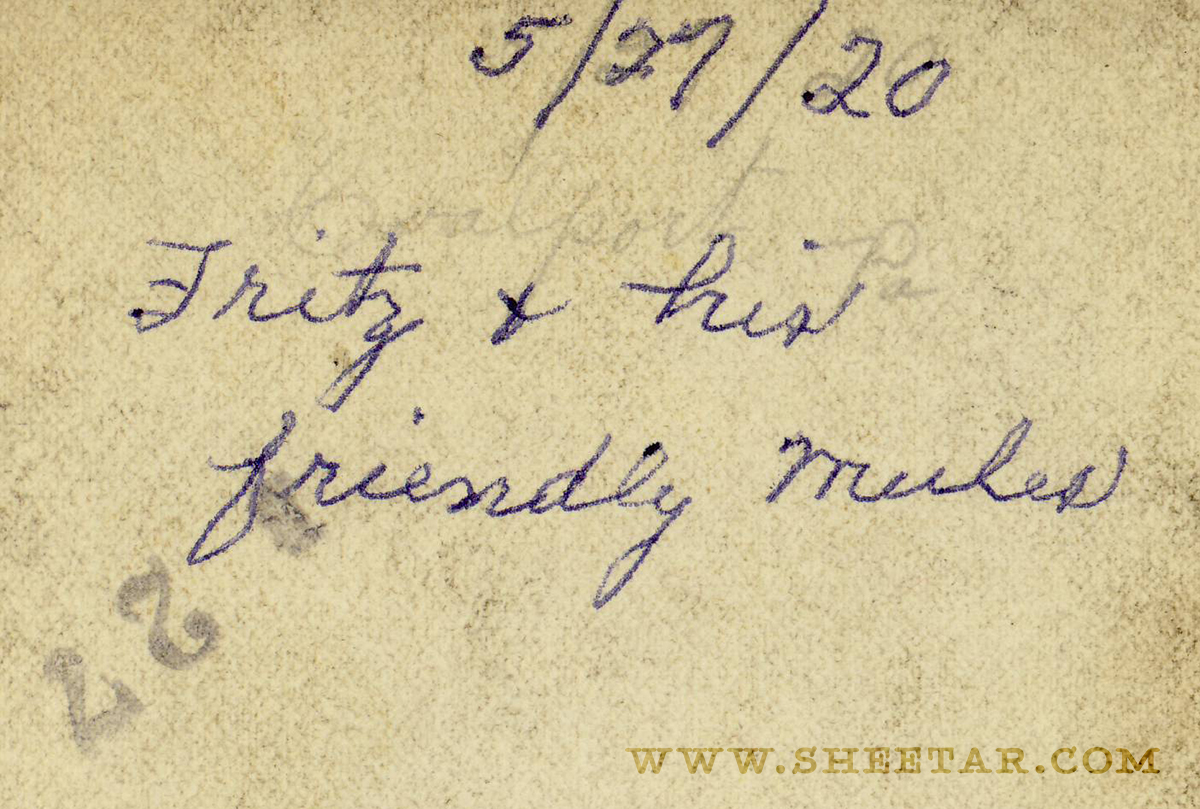 5/27/20
Fritz & his
friendly mules
22
WWW.SHEETAR.COM